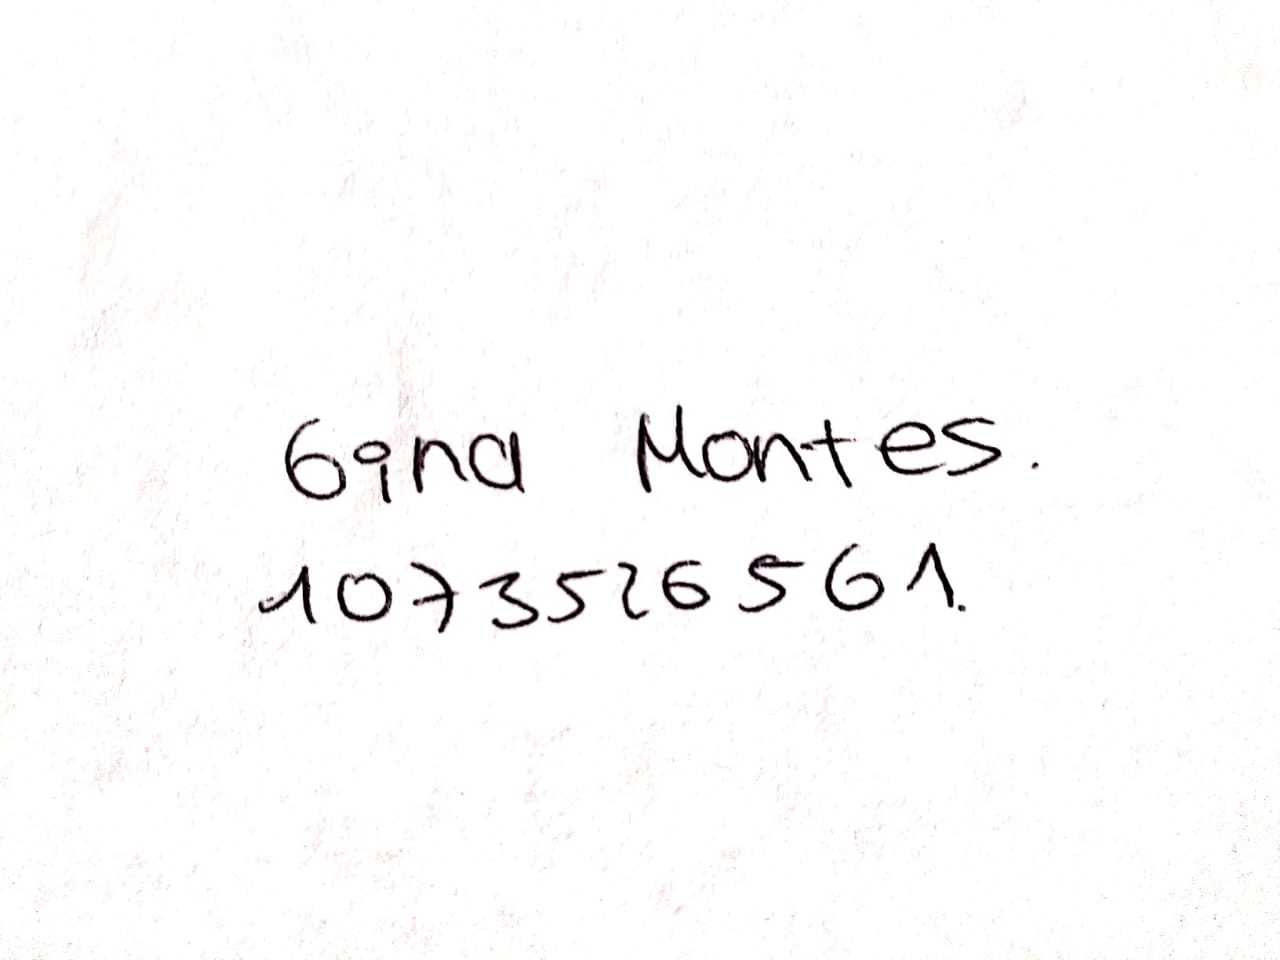 Gina Montes.
1073526561.